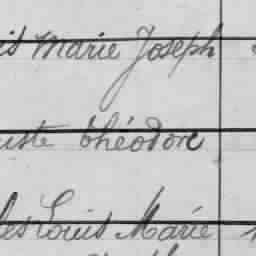 is Marie Joseph
uste Théodore
les Louis Marie